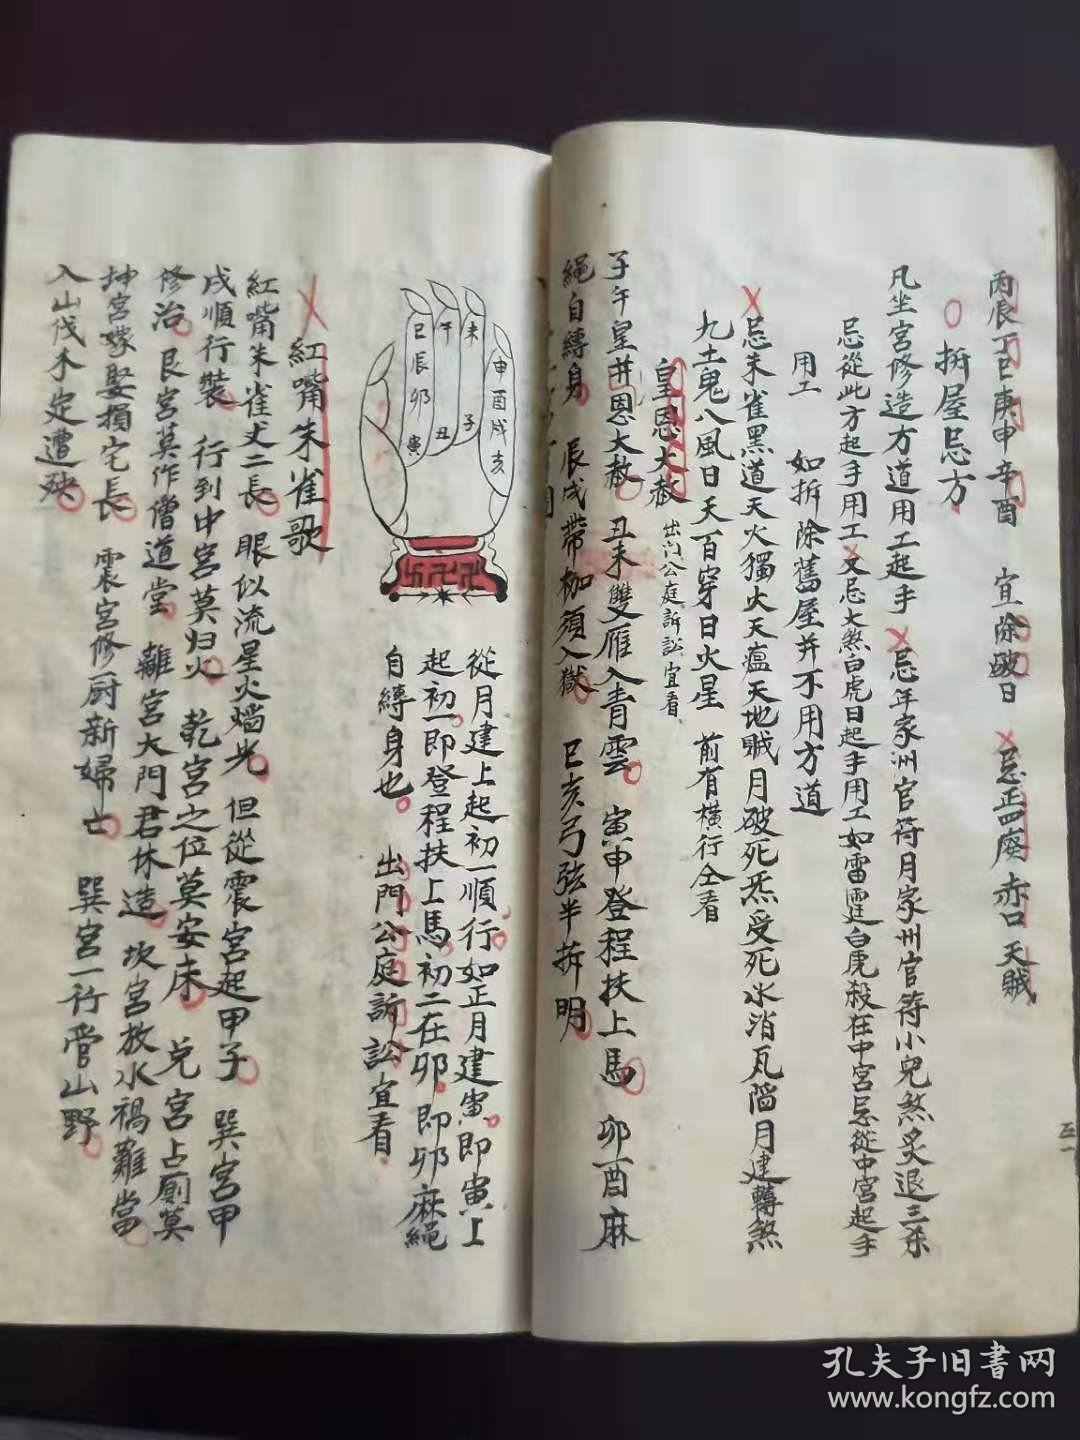 丙辰丁巳庚申辛酉 宜除破日 忌正四廢赤口天賊
拆屋忌方
凡坐宮修造方道用工起手 忌年家洲官符月家州官符小兒煞炙退三杀
忌從此方起手用工又忌大煞白虎日起手用工如雷霆白虎殺在中宮忌從中宮起手
用工 如拆除舊屋并不用方道
忌朱雀黑道天火獨火天瘟天地賊月破死炁受死水消瓦陷月建轉煞
九土鬼八風日天百穿日火星 前有橫行仝看
皇恩大赦 出门公庭訴訟宜看
子午皇并恩大赦 丑未雙雁入青雲 寅申登程扶上馬 卯酉麻
繩自縛身 辰戌帶枷須入獄 巳亥弓弦半折明
五一
午 未
巳辰卯寅 丑 子 申酉戌亥
從月建上起初一順行如正月建寅即寅上
起初一即登程扶上馬初二在卯即卯麻繩
自縛身也 出門公庭訴訟宜看
紅嘴朱雀歌
紅嘴朱雀丈二長 眼似流星火焰光 但從震宮起甲子 巽宮甲
戌順行裝 行到中宮莫归火 乾宮之位莫安床 兌宮占厠莫
修治 艮宮莫作僧道堂 離宮大門君休造 坎宮放水禍難當
坤宮嫁娶損宅長 震宮修厨新婦亡 巽宮一行管山野
入山伐木定遭殃
孔夫子旧書网
www.kongfz.com